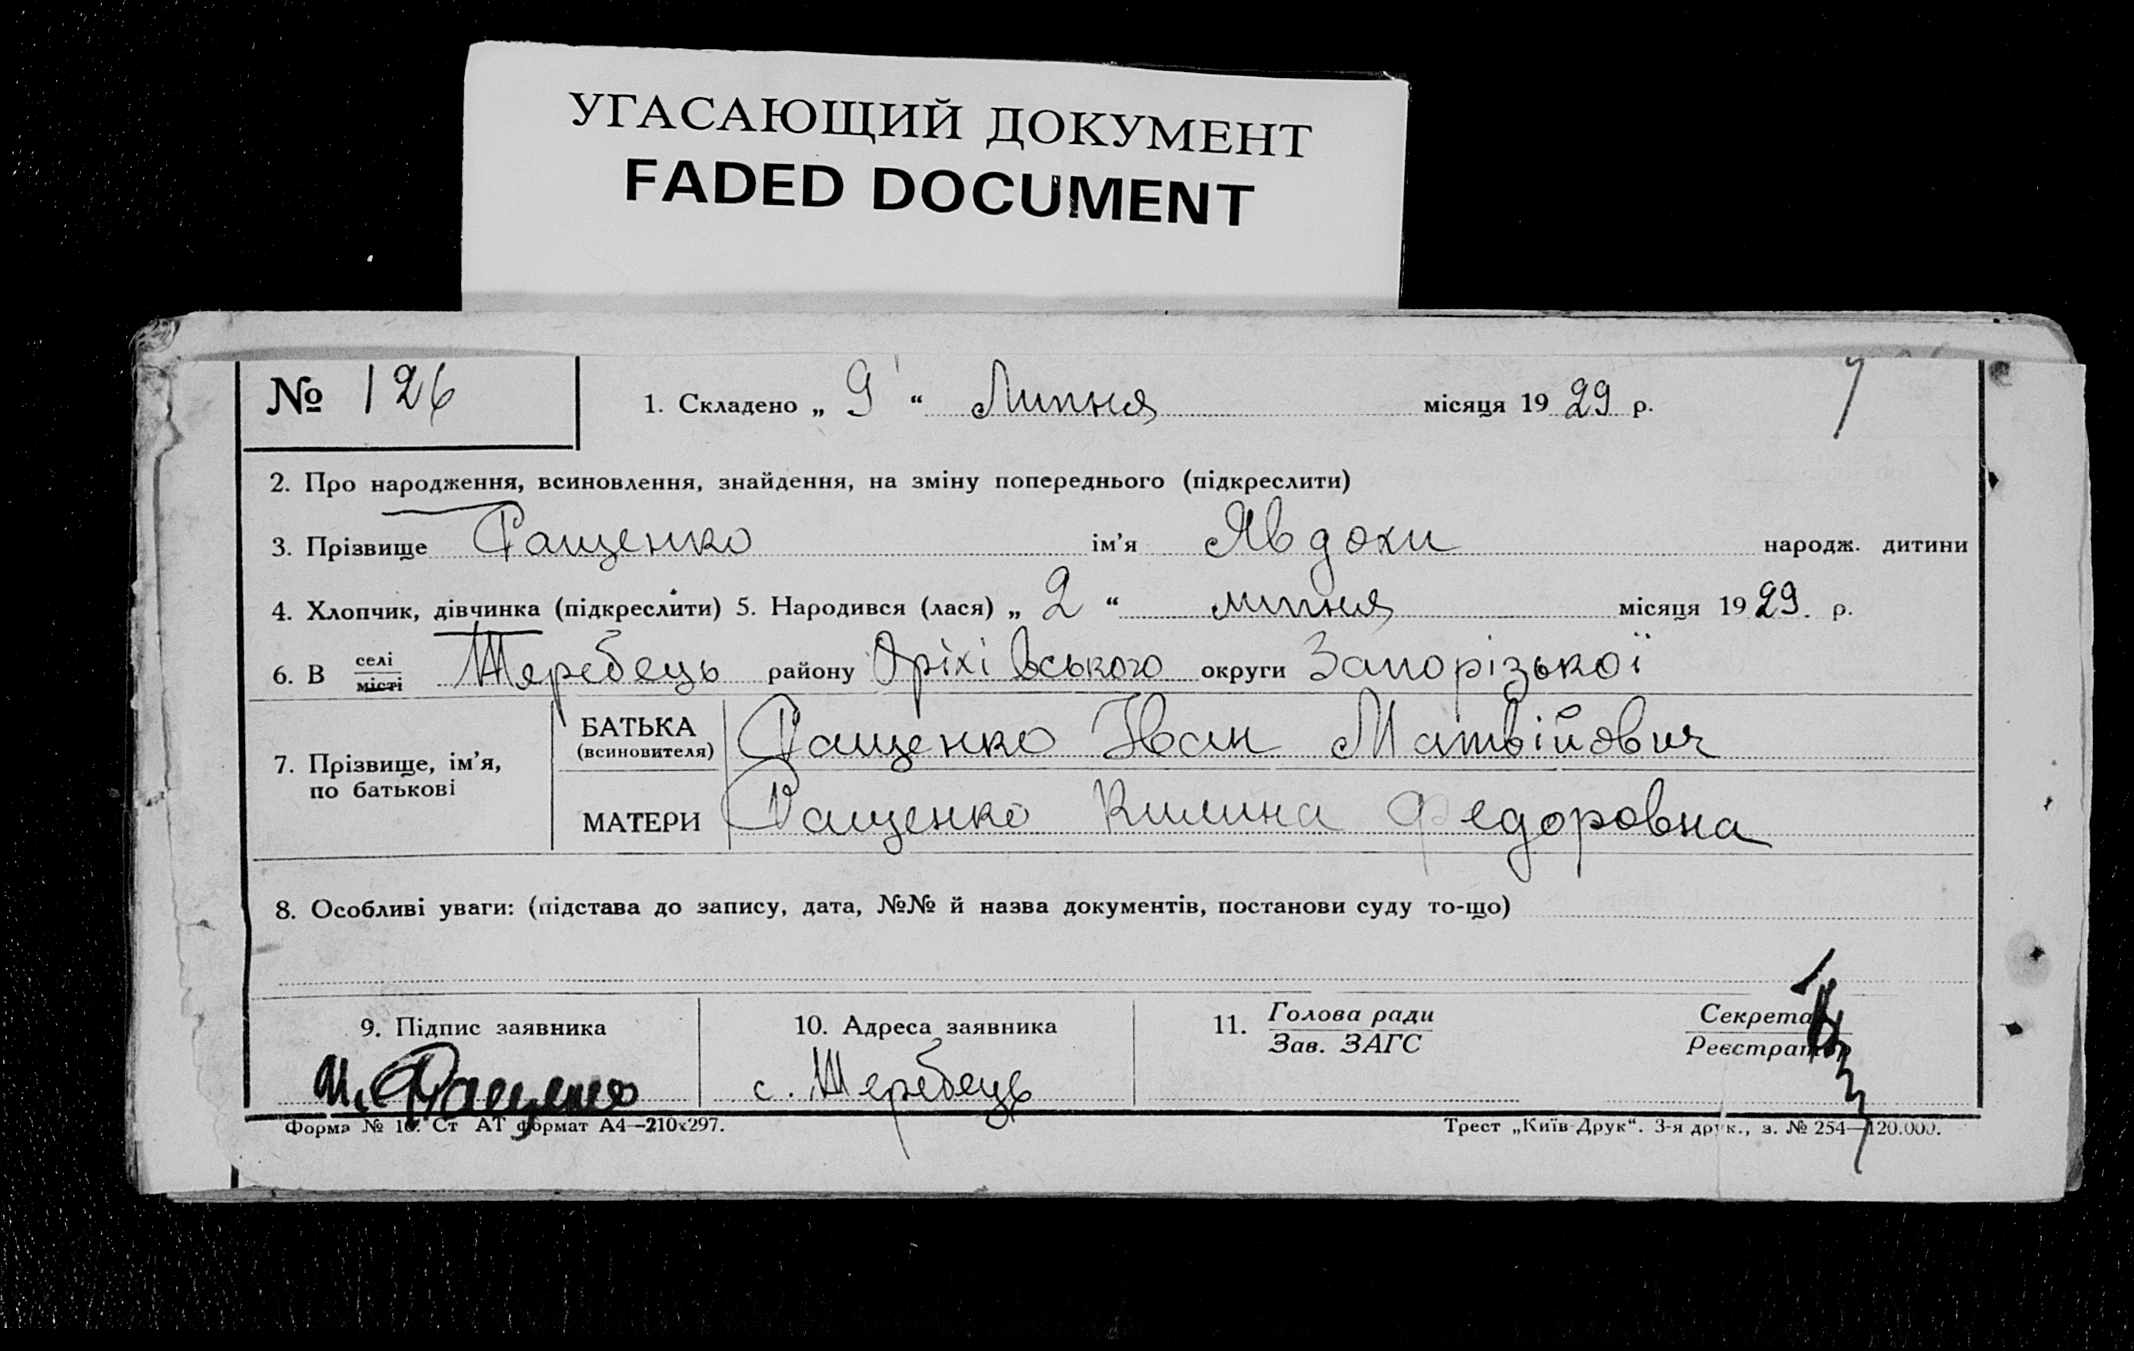 УГАСАЮЩИЙ ДОКУМЕНТ
FADED DOCUMENT
№ 126 1. Складено „ 9 “ Липня місяця 1929 р.
2. Про народження, всиновлення, знайдення, на зміну попереднього (підкреслити)
3. Прізвище Ращенко ім’я Явдохи народж. дитини
4. Хлопчик, дівчинка (підкреслити) 5. Народився (лася) „ 2 “ липня місяця 1929. р.
6. В селі місті Жеребець району Оріхівського округи Запорізької
7. Прізвище, ім’я, по батькові
БАТЬКА (всиновителя) Ращенко Іван Матвійович
МАТЕРИ Ращенко Килина Федоровна
8. Особливі уваги: (підстава до запису, дата, №№ й назва документів, постанови суду то-що)
9. Підпис заявника 10. Адреса заявника 11. Голова ради Секретар
Зав. ЗАГС Реєстратор
Ращенко с. Жеребець
Форма № 16. Ст АТ формат А4—210х297. Трест „Київ-Друк“. 3-я друк., з. № 254—120.000.